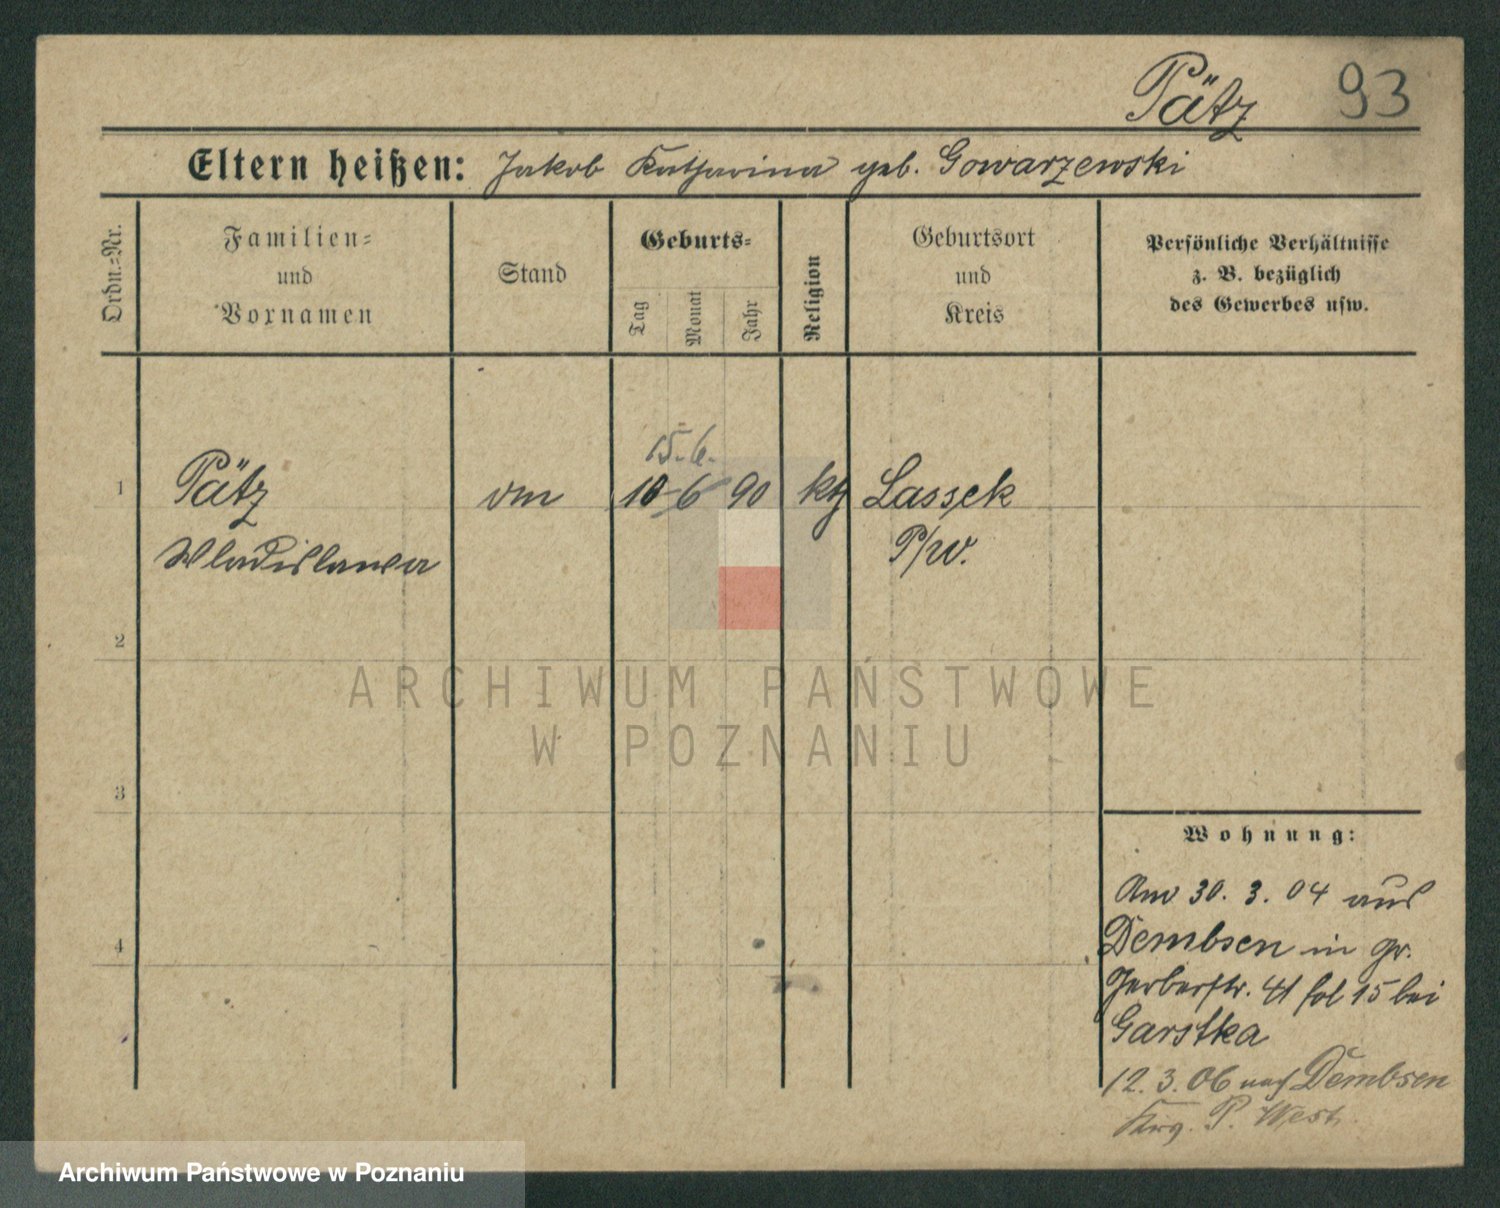 Pätz 93
Eltern heißen: Jakob Katharina geb. Gowarzewski
Ordn.=Nr.
Familien=
und
Vornamen
Stand
Geburts=
Tag
Monat
Jahr
Religion
Geburtsort
und
Kreis
Persönliche Verhältnisse
z. B. bezüglich
des Gewerbes usw.
15. 6.
1 Pätz 10 6 90 kth Lassek
Wladislawa P/W.
2
3
4
ARCHIWUM PAŃSTWOWE
W POZNANIU
Wohnung:
Am 30. 3. 04 aus
Dembsen in gr.
Gerberstr. 41 fol 15 bei
Garstka
12. 3. 06 nach Dembsen
P. West.
Archiwum Państwowe w Poznaniu